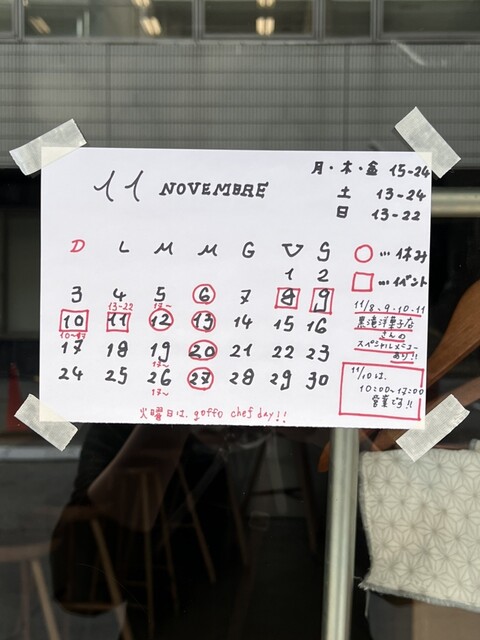 11 NOVEMBRE
月・木・金 15-24
土 13-24
日 13-22
D L M M G V S
1 2
3 4 5 6 7 8 9
13-22 17~
10 11 12 13 14 15 16
10-17
17 18 19 20 21 22 23
17~
24 25 26 27 28 29 30
17~
○…休み
□…イベント
11/8、9、10、11
黒滝洋菓子店
さんの
スペシャルメニュー
あり!!
11/10は、
10:00~17:00
営業です!!
火曜日は、goffo chef day!!